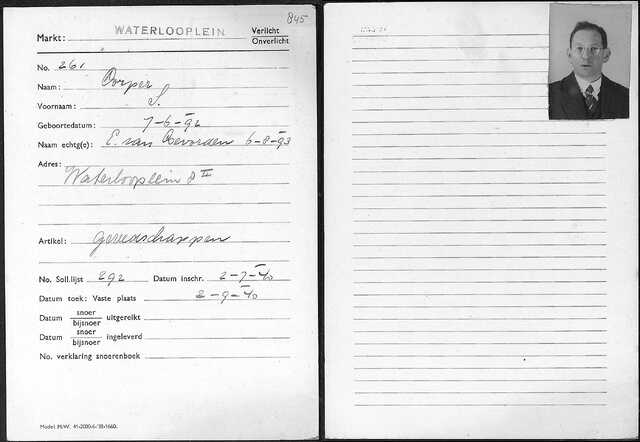 845
Markt: WATERLOOPLEIN Verlicht
Onverlicht
No. 261
Naam: Dorper
Voornaam: S.
Geboortedatum: 7-6-92
Naam echtg(e): E. van Bevorden 6-8-93
Adres: Waterlooplein 8 II
Artikel: gereedschappen
No. Soll.lijst 292 Datum inschr. 2-7-40
Datum toek: Vaste plaats 2-9-40
Datum snoer
bijsnoer uitgereikt
Datum snoer
bijsnoer ingeleverd
No. verklaring snoerenboek
Model M/W.